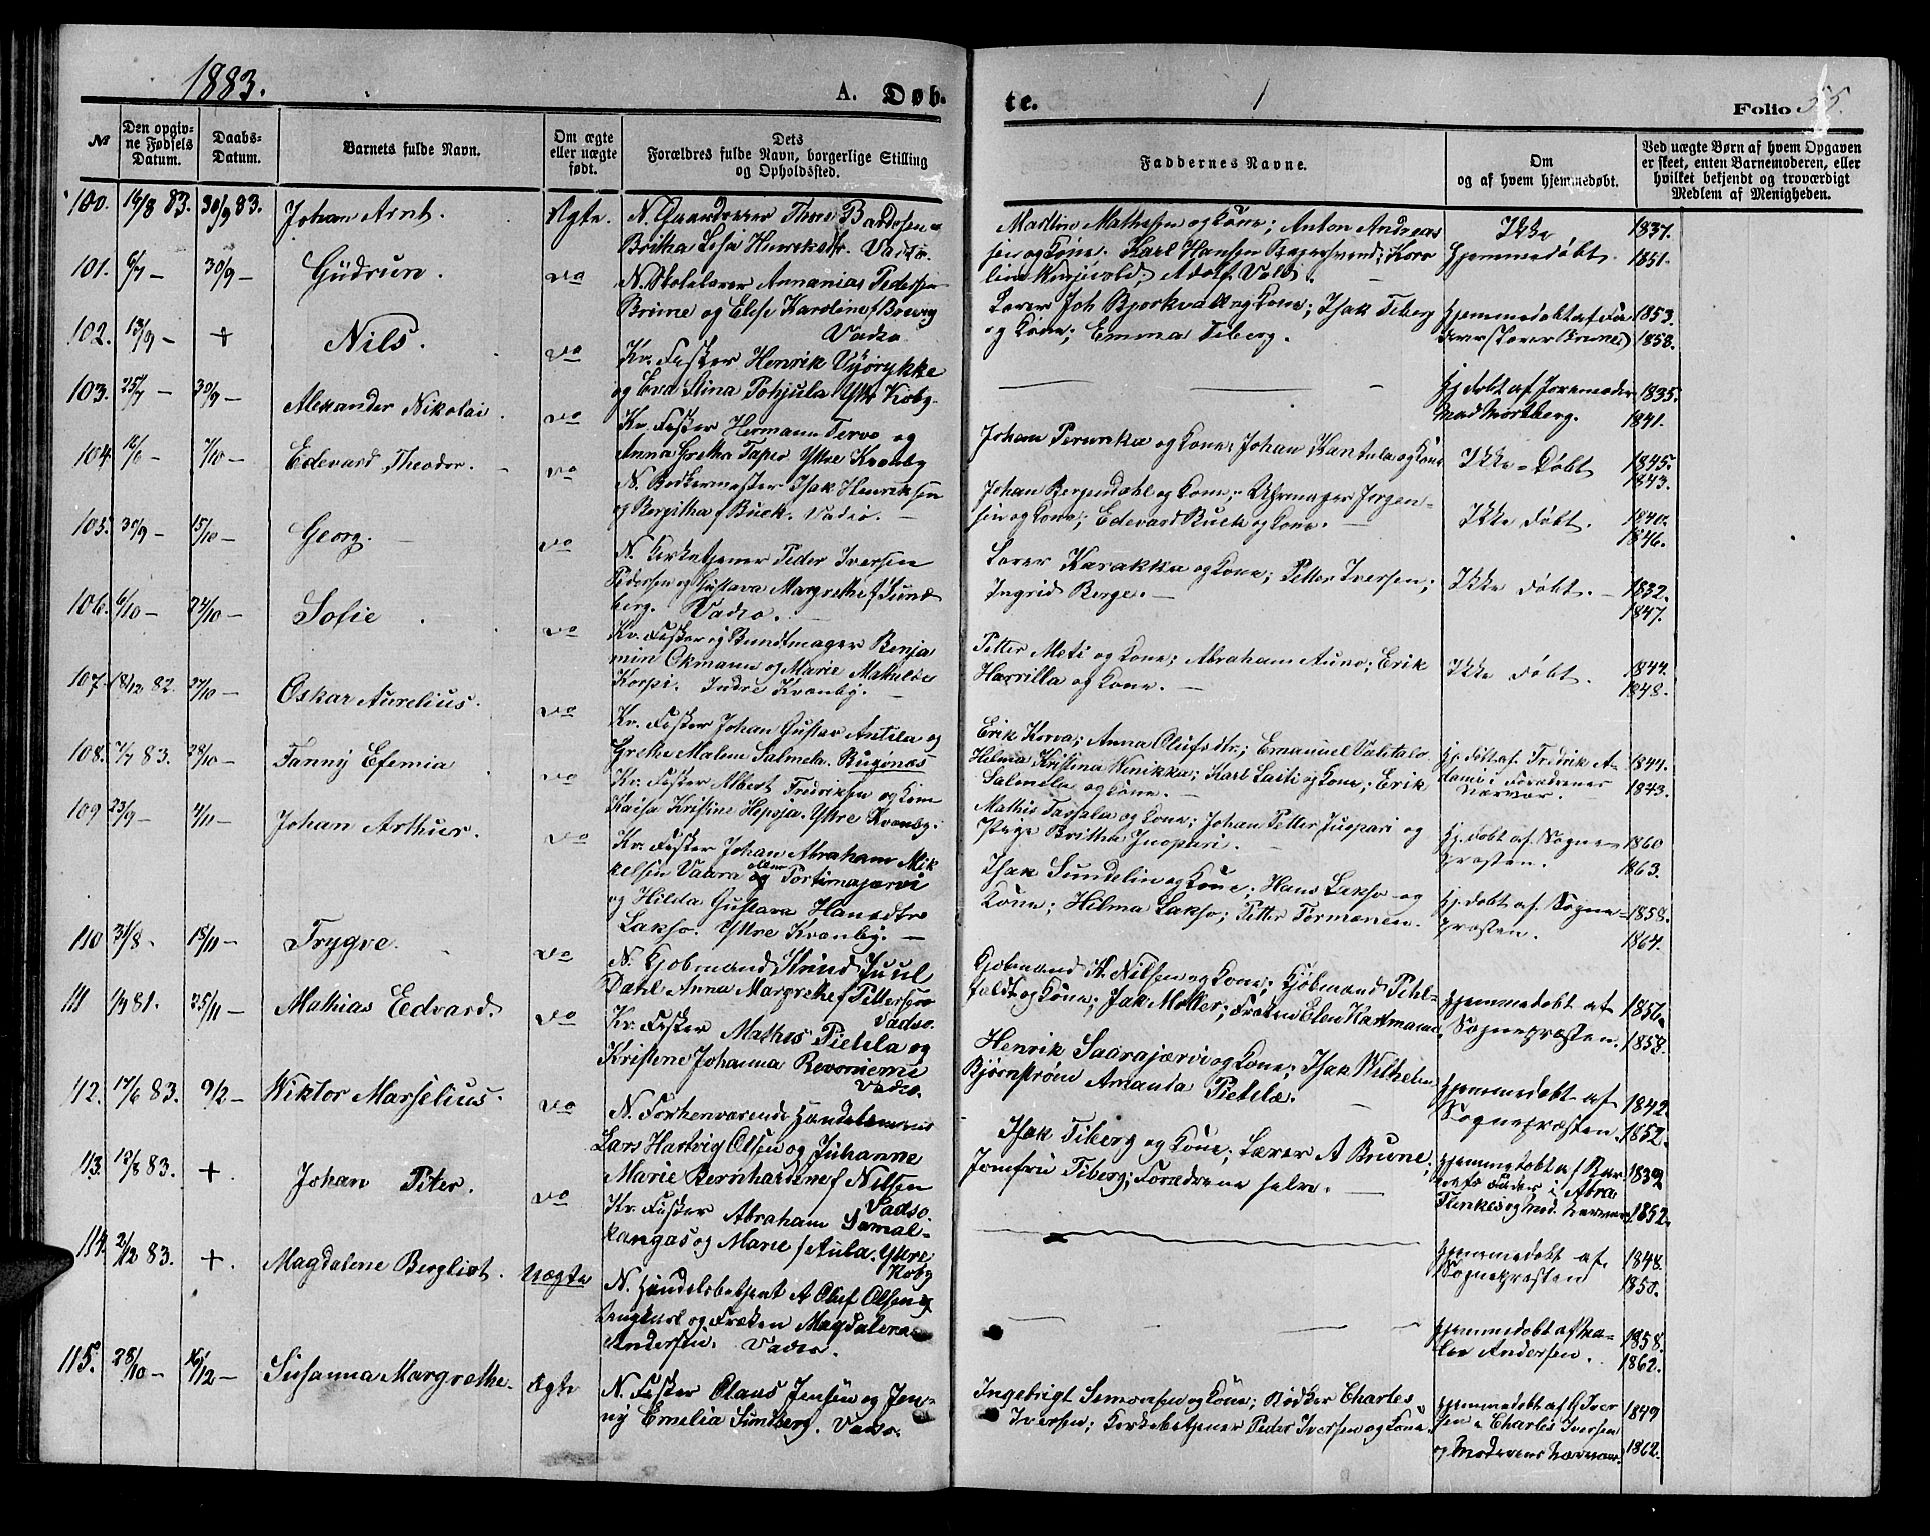 1883.
A. Døb-
te.
Folio 55.
№
Den opgiv-
ne Fødsels
Datum.
Daabs-
Datum.
Barnets fulde Navn.
Om ægte
eller uægte
født.
Dets
Forældres fulde Navn, borgerlige Stilling
og Opholdssted.
Faddernes Navne.
Om
og af hvem hjemmedøbt.
Ved uægte Børn af hvem Opgaven
er skeet, enten Barnemoderen, eller
hvilket bekjendt og troværdigt
Medlem af Menigheden.
100. 14/8 83. 30/9 83. Johan Arnt. Ægte.
Britha Lisa Henriksdr. Vadsø.
Madtin Mathesen og Kone; Anton Andreas
sen og Kone. Karl Hansen Bagersvend; Karo
Adolf Vold.
Ikke
Hjemmedøbt.
1837.
1851.
101. 6/7 — 30/9 — Gudrun. do
N. Skolelærer Annanias Pedersen
Brune og Elise Karoline f Brevig
Vadsø
Lærer Joh Bjørkvall og Kone; Isak Tiberg
og Kone; Emma Tiberg.
Hjemmedøbt af Fa
deren (Lærer Brune)
1853.
1858.
102. 13/9 — + Nils. do
Kv. Fisker Henrik Vyørykke
og Eva Stina Pohjula Yttre Kvbg.
Hj. døbt af Joremoder
Mad Mortberg.
1835.
1841.
103. 25/7 — 30/9 — Alexander Nikolai. do
Kv. Fisker Hermann Tervo og
Anna Gretha Tapio Yttre Kvænby
Johan Perunka og Kone; Johan Kantula og Kone
Ikke - Døbt
1845.
1843.
104. 16/6 — 7/10 — Edevard Theodor. do
N. Bødkermester Isak Henriksen
og Bergitha f Buck. Vadsø.
Johan Bergendahl og Kone; Uhrmager Jørgen-
sen og Kone; Edevard Buck og Kone.
Ikke døbt.
1840.
1846.
105. 30/9 — 15/10 — Georg. do
N. Kirketjener Peder Iversen
Pedersen og Gustava Margrethe f Sund
berg. Vadsø.
Lærer Karakka og Kone; Petter Iversen;
Ingrid Berge.
Ikke døbt.
1832.
1847.
106. 6/10 — 24/10 — Sofie do
Kv. Fisker og Bundtmager Benja
min Okmann og Marie Mathilde
Korpi. Indre Kvænby.
Petter Meti og Kone; Abraham Auno; Erik
Harrilla og Kone.
Ikke døbt.
1844.
1848.
107. 18/12 82. 27/10 — Oskar Aurelius. do
Kv. Fisker Johan Gustav Antila og
Grethe Malene Salmela. Bugønæs
Erik Korva; Anna Olufsdtr; Emanuel Valitalo
Hilma Kristina Wenikka; Karl Laiti og Kone; Erik
Salmela og Kone.
Hj. døbt af Fredrik A-
dams i Forældrenes
Nærvær.
1844.
1843.
108. 7/7 83. 28/10 — Fanny Efemia do
Kv. Fisker Albert Fredriksen og Kone
Kaisa Kristine Heposa. Yttre Kvænby.
Mathis Tassala og Kone; Johan Petter Juopari og
Pige Britha Juopari.
Hj. døbt af Sogne-
præsten.
1860
1863.
109 23/9 — 4/11 — Johan Arthur. do
Kv. Fisker Johan Abraham Mik
kelsen Vaara eller Tortimajærvi
og Hilda Gustava Hansdtr
Lakso. Yttre Kvænby.
Isak Sundelin og Kone; Hans Lakso og
Kone; Hilma Lakso; Petter Tormanen.
Hj. døbt af Sogne-
præsten.
1858.
1864.
110 31/8 - 18/11 — Trygve. do
N. Kjøbmand Strind Juul
Dahl Anna Margrethe f Petterson
Vadsø.
Kjøbmand H. Nilsen og Kone; Kjøbmand Pihl-
feldt og Kone; Isak Møller; Frøken Elen Hartmann.
Hjemmedøbt af
Sognepræsten.
1856
1858.
111 1/9 81. 25/11 — Mathias Edvard. do
Kv. Fisker Mathis Pietila og
Kristine Johanna Revonieme
Vadsø.
Henrik Saarajærvi og Kone; Isak Wilhelm
Bjørnstrøm Amanda Pietilæ.
Hjemmedøbt af
Sognepræsten.
1842
1852.
112. 17/6 83. 9/12 — Wiktor Marselius. do
N. Forhenværende Handelsmand
Lars Hartvig Olsen og Juhanne
Marie Bernhardine f Nilsen
Vadsø.
Isak Tiberg og Kone; Lærer A Brune;
Jomfru Tiberg; Forældrene selv.
Hjemmedøbt af Bar
nets Fader i Abra
Flenkes og Mod. Nærvær.
1832
1852.
113. 18/8 83. + Johan Peter. do
Kv. Fisker Abraham Samal-
kangas og Marie f Aula. Yttre
Kvbg
Hjemmedøbt af
Sognepræsten
1848.
1850.
114. 2/12 83. + Magdalene Bergliot. Uægte
N. Handelsbetjent A Oluf Olsen
Ungkarl og Frøken Magdalena
Andersen. Vadsø.
Hjemmedøbt af Ma-
Andersen.
1858.
1862.
115. 28/10 — 16/12 — Susanna Margrethe. Ægte
N. Fisker Claus Jensen og Jen-
ny Emelia Sundberg. Vadsø.
Ingebrigt Simonsen og Kone; Bødker Charles
Iversen; Kirkebetjener Peder Iversen og Kone.
Hjemmedøbt af P Iver
sen i Charles Iversen
og Moderens Nærvær.
1849
1862.